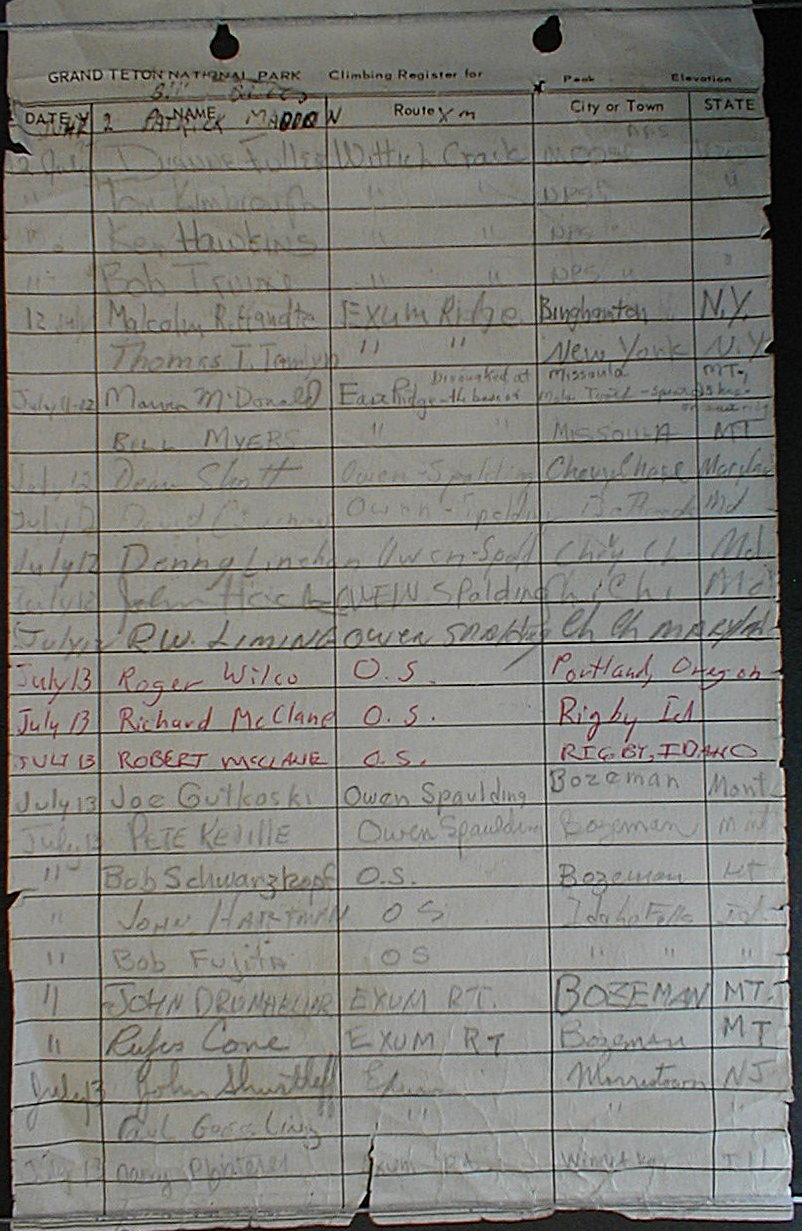 GRAND TETON NATIONAL PARK Climbing Register for Peak Elevation
Bill
DATE NAME Route City or Town STATE
JUNE 2 PATRICK MADDEN Xm
12 July Dianne Wittich Crack Moose
" Tom Kimbrough " " NPS "
" Ken Hawkins " " NPS "
" Bob Irvine " " NPS " "
12 July Malcolm R. Exum Ridge Binghamton N.Y.
Thomas T. " " New York N.Y.
July 11-12 McDonald East Ridge bivouacked at the base of Missoula MT.
BILL MYERS " " MISSOULA MT
July 12 Owen-Spalding Chevy Chase
July 12 David Owen-Spalding Md
July 12 Denny Linehan Owen-Spald Chevy Ch Md
July 12 John OWEN SPalding Ch. Ch. Md
July 12 R.W. LIMING OWEN Ch Ch
July 13 Roger Wilco O.S. Portland, Oregon
July 13 Richard McClane O.S. Rigby Id
JULY 13 ROBERT McCLANE O.S. RIGBY, IDAHO
July 13 Joe Gutkoski Owen Spaulding Bozeman Mont
July 13 PETE KEVILLE Owen Spaulding Bozeman Mont
" Bob Schwarzkopf O.S. Bozeman
" JOHN HARTMAN O S Idaho Falls Id
" Bob Fujita O S " " "
" JOHN EXUM RT. BOZEMAN MT.
" Rufus Cone EXUM RT Bozeman MT
July 13 John Shurtleff Exum Morristown NJ
" " "
July 13 Exum Ill